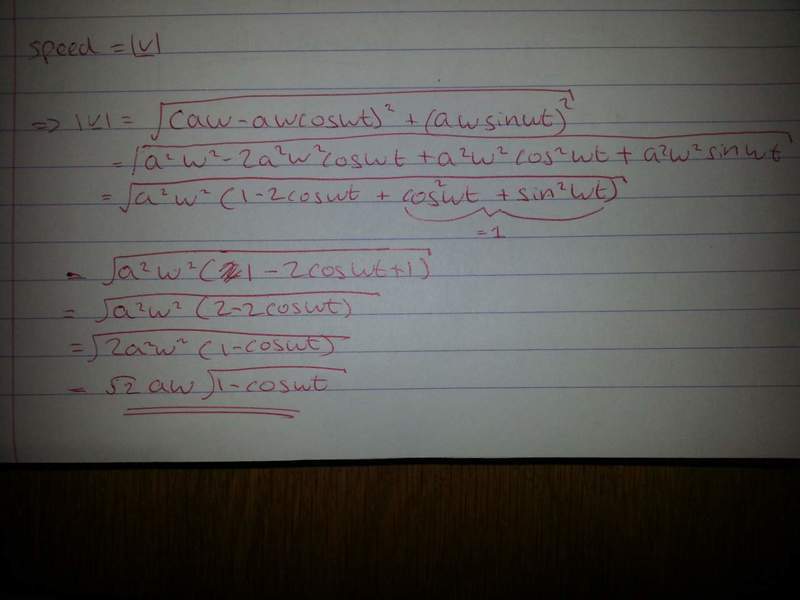 speed = |v|
=> |v| = √(aw - awcoswt)² + (awsinwt)²
= √a²w² - 2a²w²coswt + a²w²cos²wt + a²w²sinwt
= √a²w² (1 - 2coswt + cos²wt + sin²wt)
= 1
= √a²w² (1 - 2coswt + 1)
= √a²w² (2 - 2coswt)
= √2a²w² (1 - coswt)
= √2 aw √1 - coswt